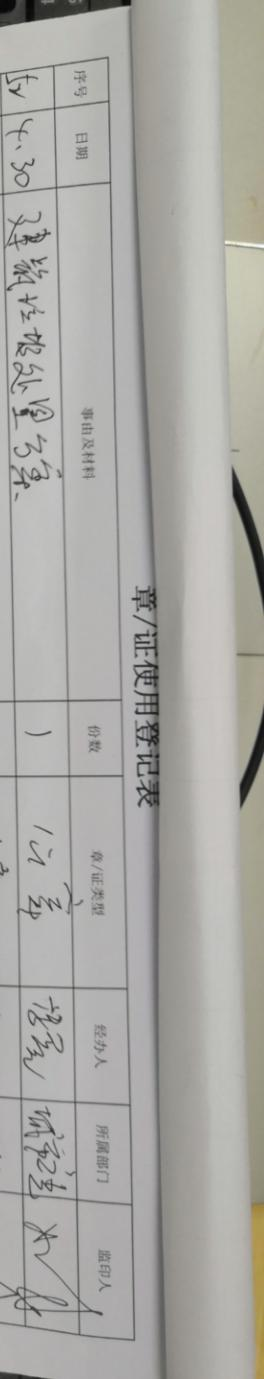 章/证使用登记表
序号 日期 事由及材料 份数 章/证类型 经办人 所属部门 监印人
4.30 建筑垃圾处置方案 1 公章